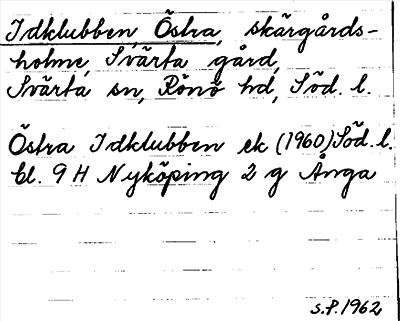 Idklubben, Östra, skärgårds-
holme, Svärta gård,
Svärta sn, Rönö hd, Söd. l.
Östra Idklubben ek (1960) Söd. l.
bl. 9 H Nyköping 2 g Ånga
S.P. 1962